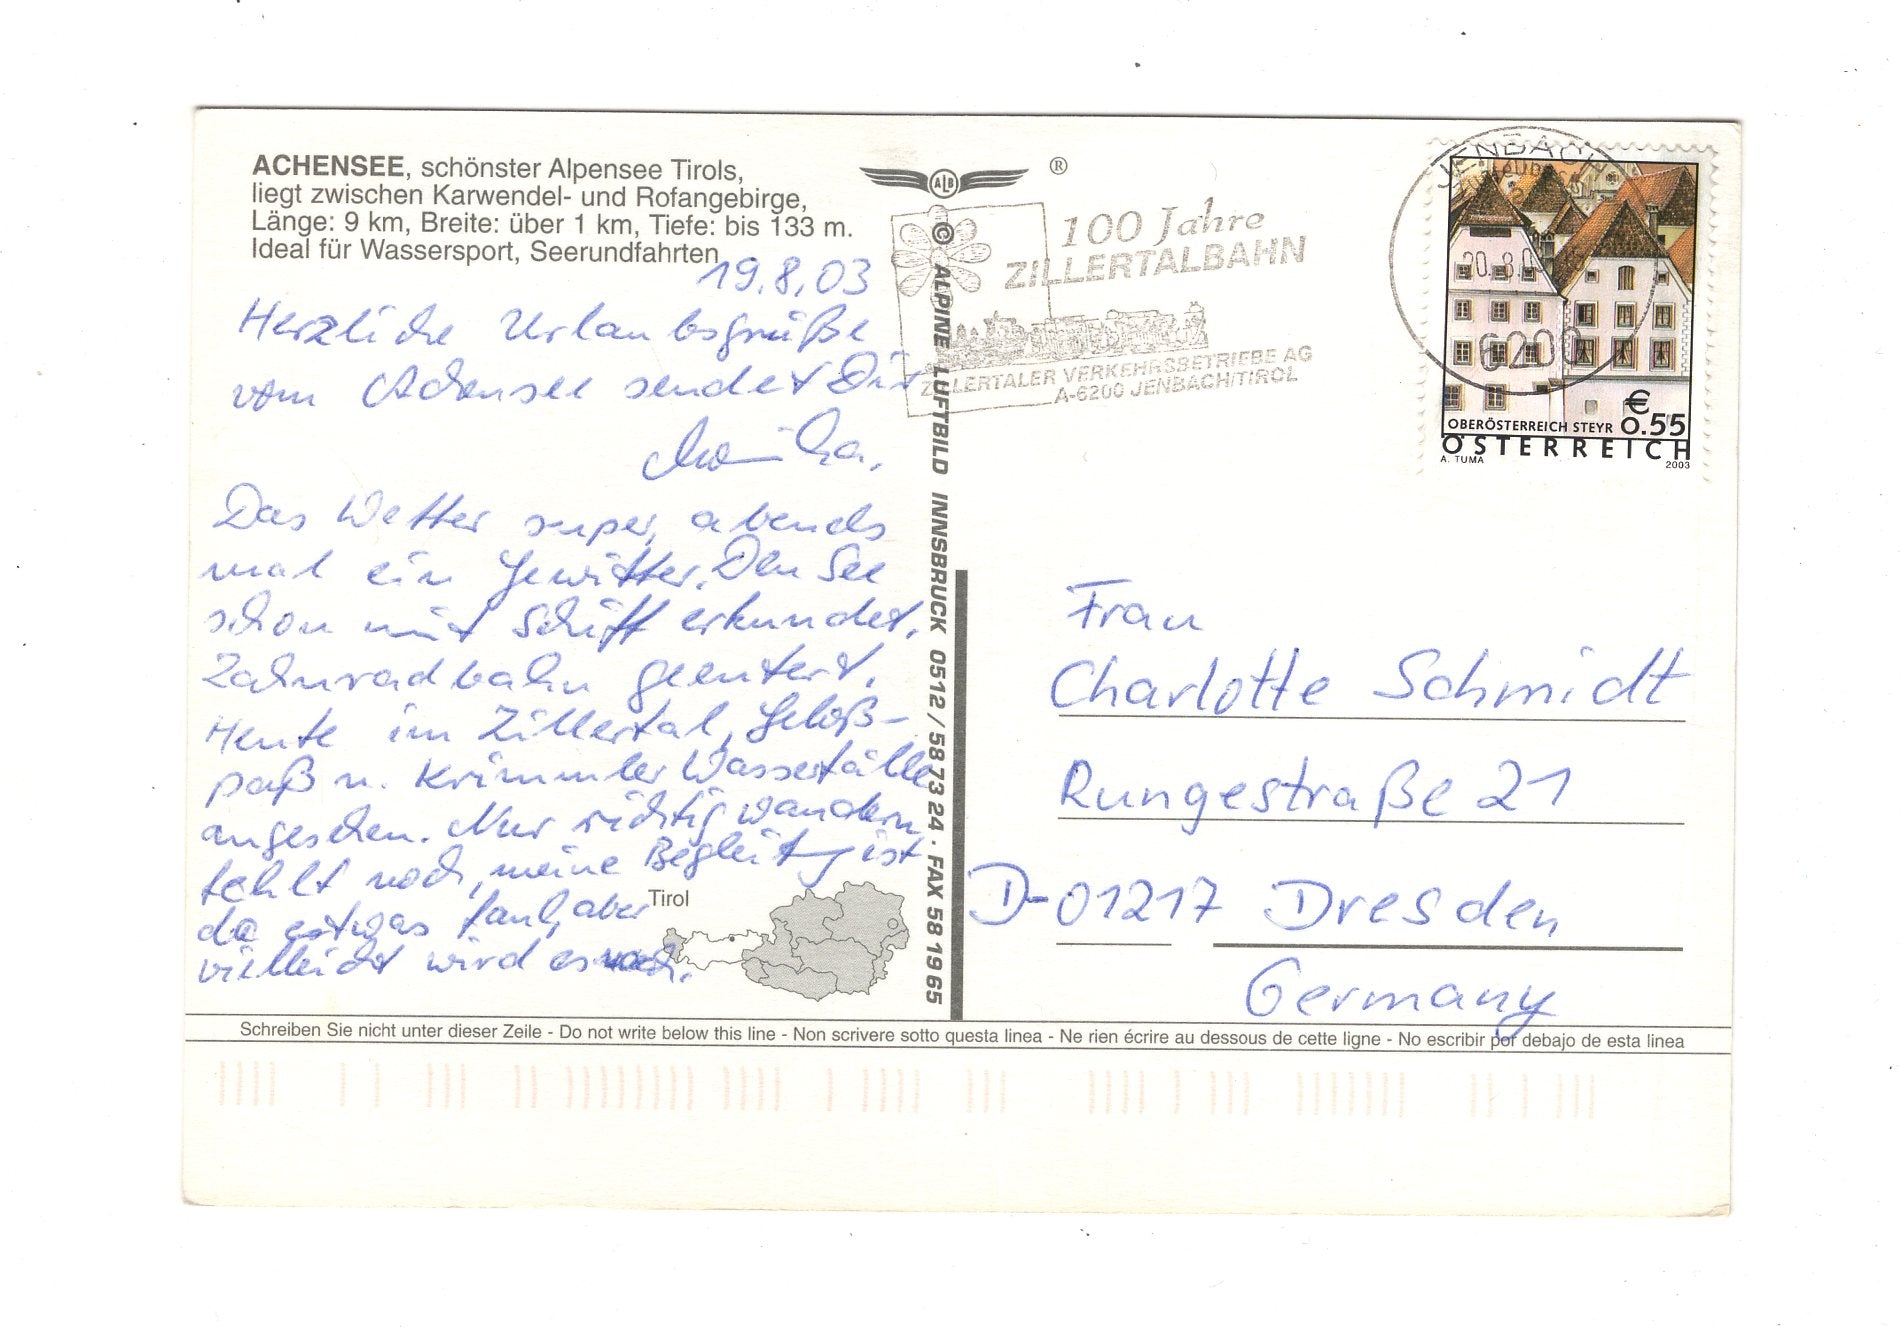 ACHENSEE, schönster Alpensee Tirols,
liegt zwischen Karwendel- und Rofangebirge,
Länge: 9 km, Breite: über 1 km, Tiefe: bis 133 m.
Ideal für Wassersport, Seerundfahrten
19.8.03
Herzliche Urlaubsgrüße
vom Achensee sendet Dir
Das Wetter super, abends
mal ein Gewitter. Den See
schon mit Schiff erkundet.
Zahnradbahn geentert.
Heute im Zillertal, Gerloß-
paß u. Krimmler Wasserfälle
angesehen. Nur richtig wandern
fehlt noch, meine Begleitung ist
da etwas faul, aber
vielleicht wird es noch.
Tirol
ALB
®
© ALPINE LUFTBILD INNSBRUCK 0512 / 58 73 24 · FAX 58 19 65
100 Jahre
ZILLERTALBAHN
ZILLERTALER VERKEHRSBETRIEBE AG
A-6200 JENBACH/TIROL
JENBACH
20.8.03
6200
€
0.55
OBERÖSTERREICH STEYR
ÖSTERREICH
A. TUMA
2003
Frau
Charlotte Schmidt
Rungestraße 21
D-01217 Dresden
Germany
Schreiben Sie nicht unter dieser Zeile - Do not write below this line - Non scrivere sotto questa linea - Ne rien écrire au dessous de cette ligne - No escribir por debajo de esta linea